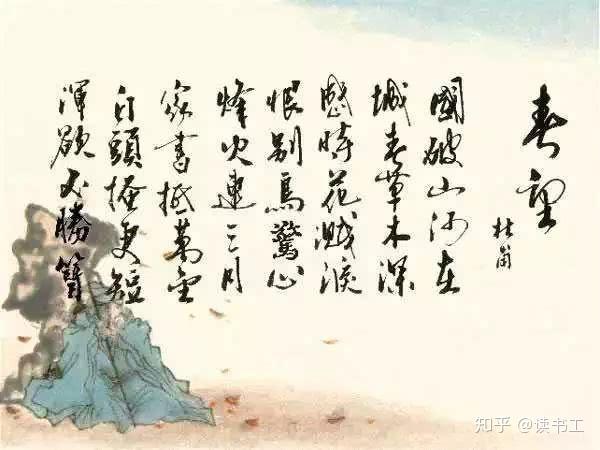 春望
杜甫
國破山河在
城春草木深
感時花濺淚
恨别鳥驚心
烽火連三月
家書抵萬金
白頭搔更短
渾欲不勝簪
知乎 @读书工